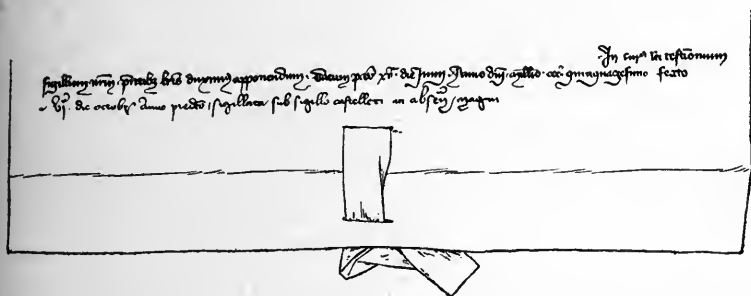 In cuius rei testimonium
sigillum nrm̄ pñtibꝫ lris duximus apponendum. Datum die Junii Anno dñi millio ccc quinquagesimo sexto
vi die octobr̄ Anno predco sigillata sub sigillo castelleti in absen magni